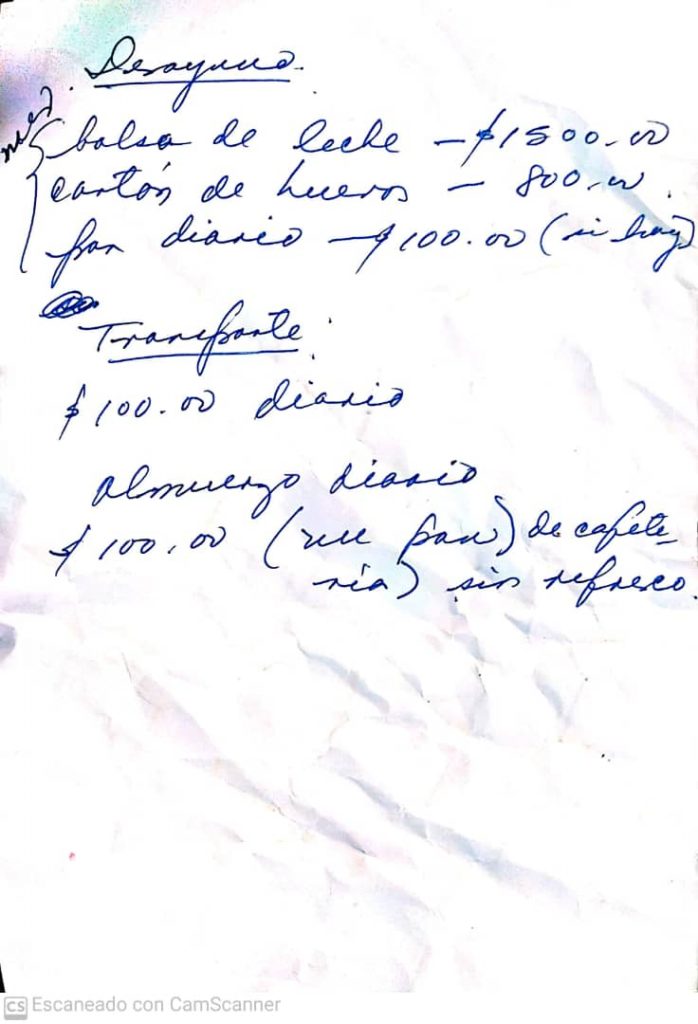 Desayuno.
mes.
bolsa de leche - $1500.00
cartón de huevos - 800.00.
pan diario - $100.00 (si hay)
Transporte:
$100.00 diario
almuerzo diario
$100.00 (un pan) de cafete-
ría) sin refresco.
CS Escaneado con CamScanner